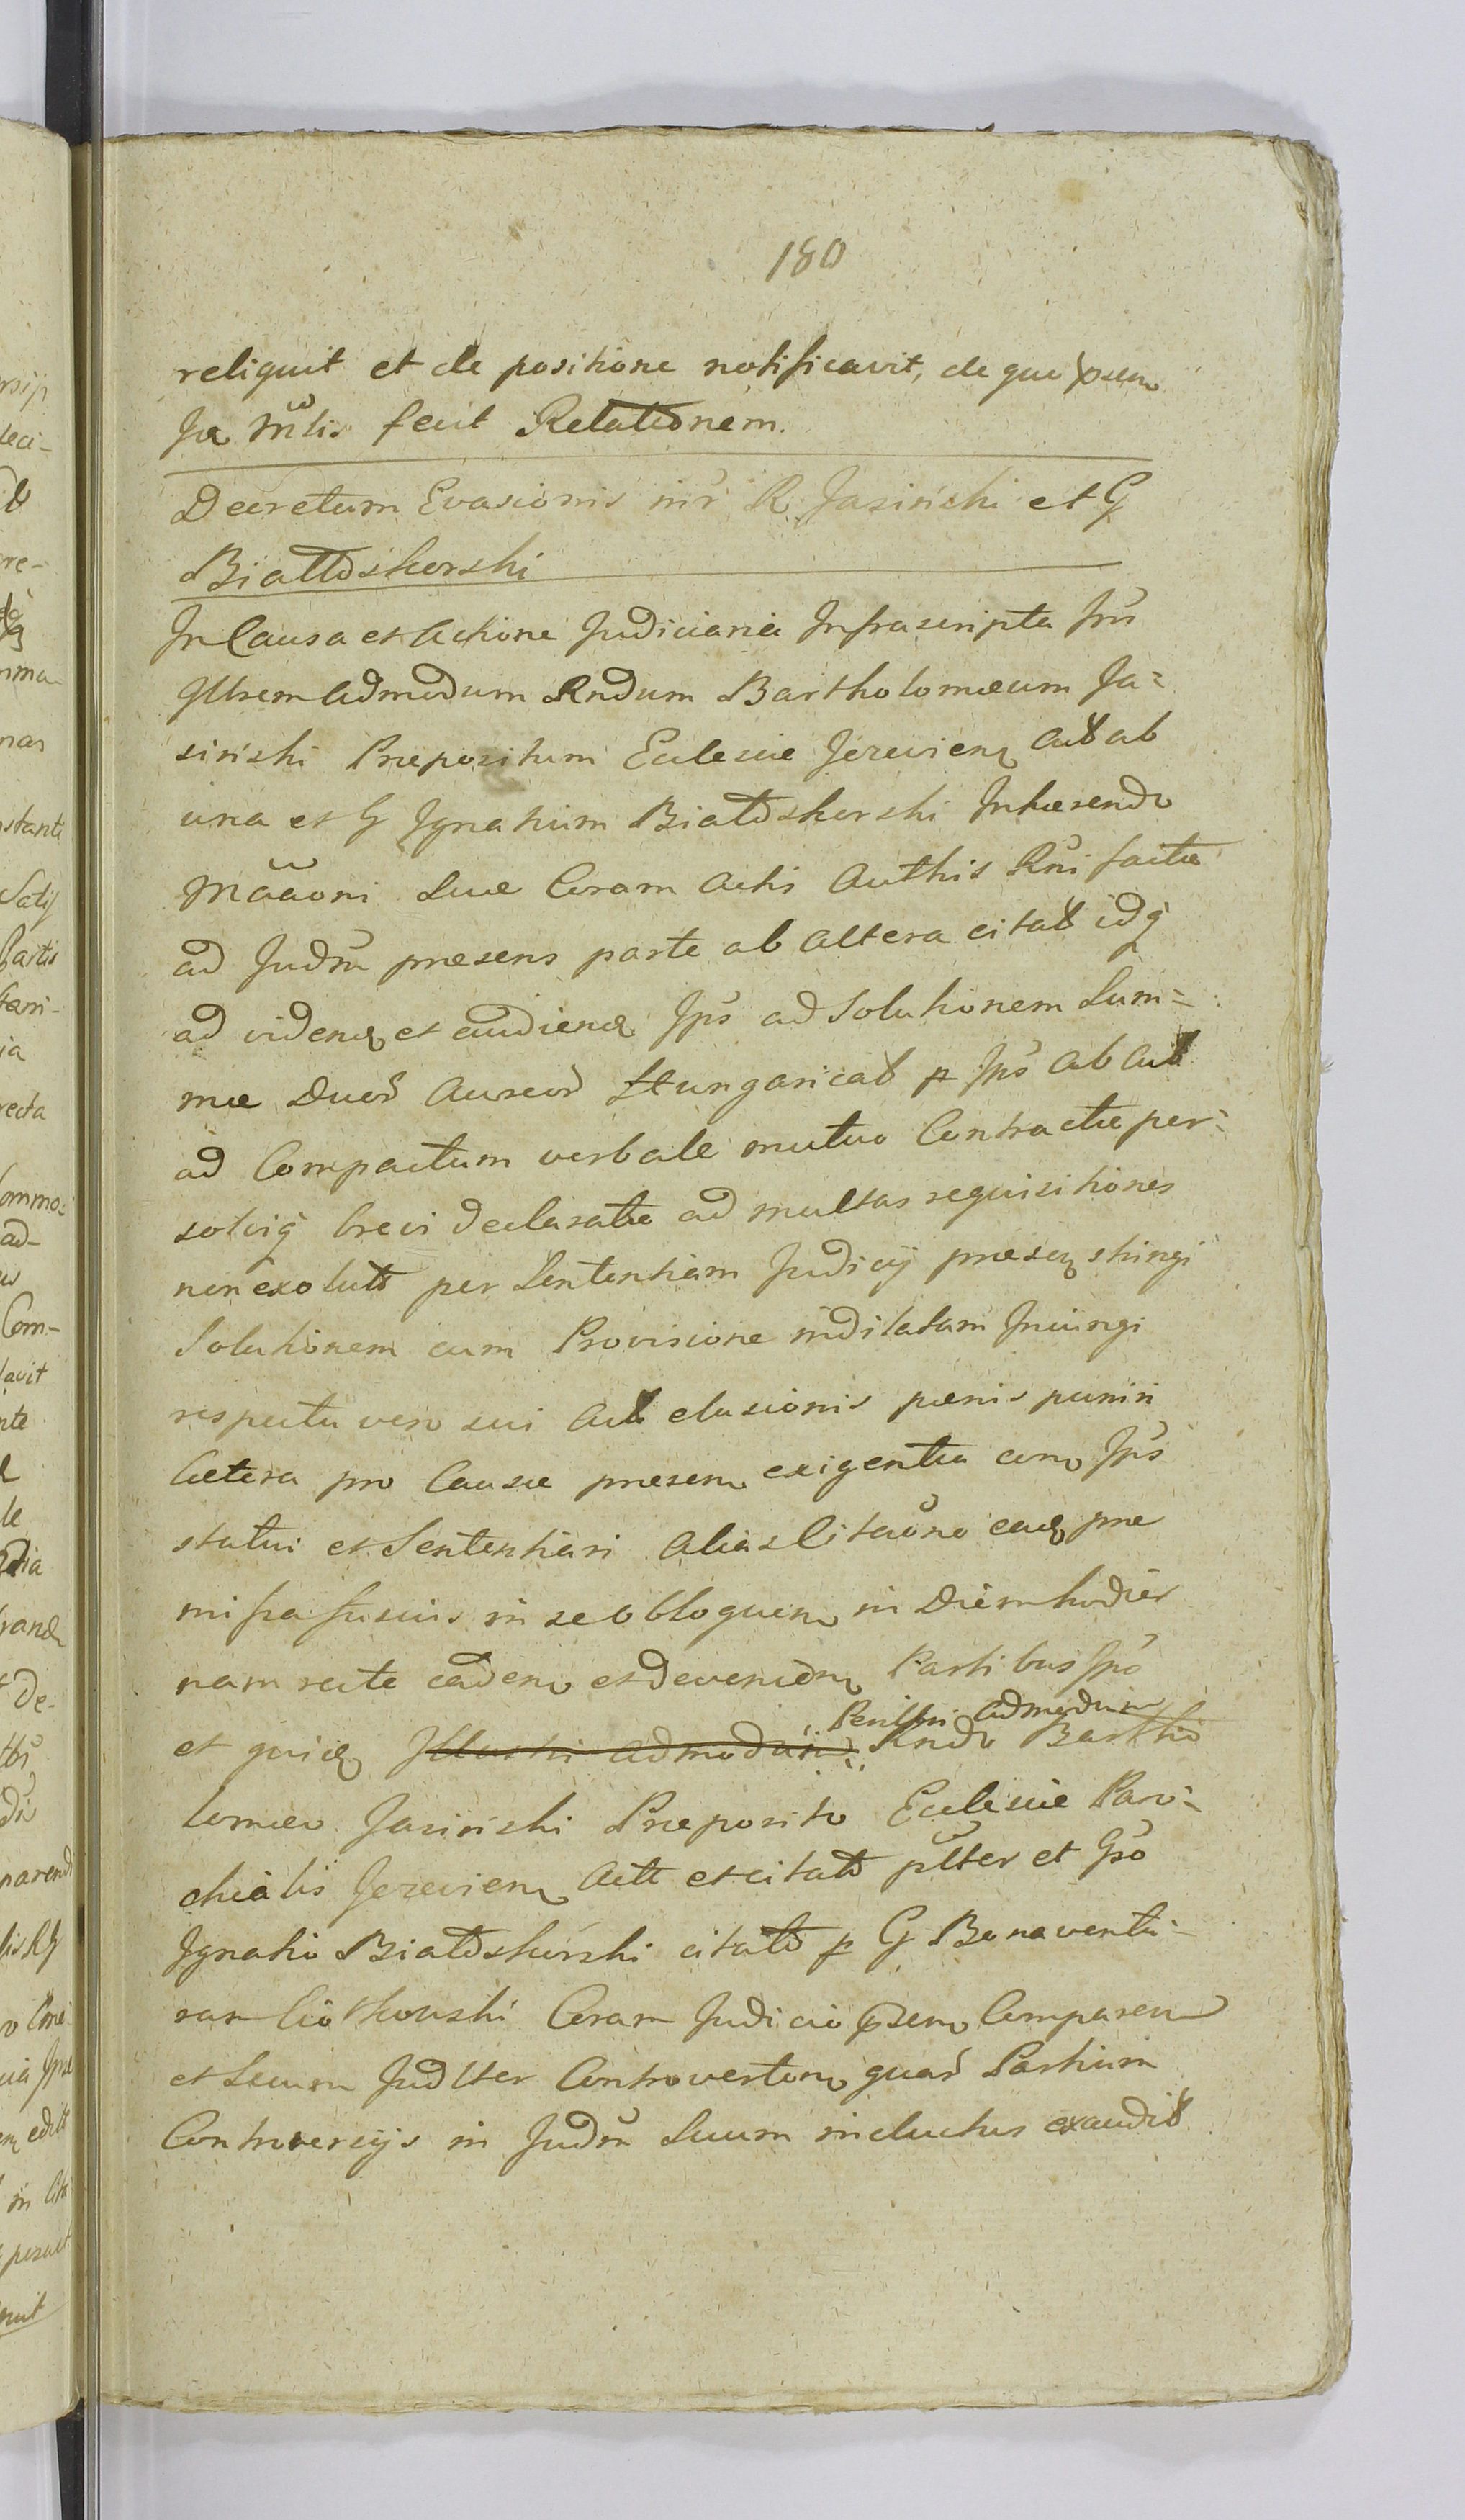 180
reliquit et de positione notificavit, de quo psen
Ja Mlis fecit Relationem.
Decretum Evasionis inr R Jasinski et G
Białłoskorski
In Causa et Actione Judiciaria Infrascripta Inr
Illtrem Admodum Rndum Bartholomæum Ja=
sinski Præpositum Eclesiæ Jezevien Act ab
una et G Ignatium Białłoskorski Inhærendo
Maãoni Suæ Coram Actis Authis Rni factæ
ad Judm præsens parte ab altera citat idq
ad viden et audien Ips ad Solutionem Sum=
mæ Duor Aureor Hungarical p Ips ab Act
ad Compactum verbale mutuo Contractæ per=
solviq brevi declaratæ ad multas requisitiones
non exolut per Sententiam Judicij præsen stringi
Solutionem cum Provisione inditatam Iniungi
respectu vero sui Act elusionis pænis puniri
Cætera pro Causæ præsen exigentia con Ips
statui et Sententiari alias Citaõne ead præ
missa fusius in se obloquen in Diem hodier
nam recte caden et devenien Partibus Ips
Perillri Admodum
et quid Illustri Admodum Rndo Bartho
lomæo Jasinski Præposito Eclesiæ Paro=
chialis Jezevien Act et citat plter et Gso
Ignatio Białłoskórski citato p G Bonaventu=
ram Ciołkowski Coram Judicio psen Comparen
et Secum Judlter Controverton quar Partium
Controversijs in Judm Suum inductus exaudit